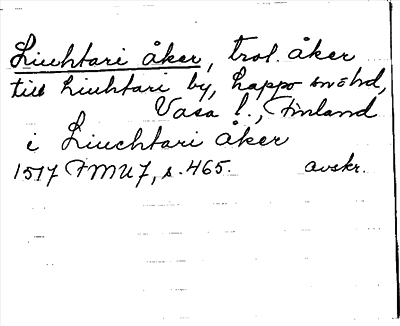 Liuhtari åker, trol. åker
till Liuhtari by, Lappo snöhd,
Vasa l., Finland
i Liuchtari åker
1517 FMU 7, s. 465. avskr.